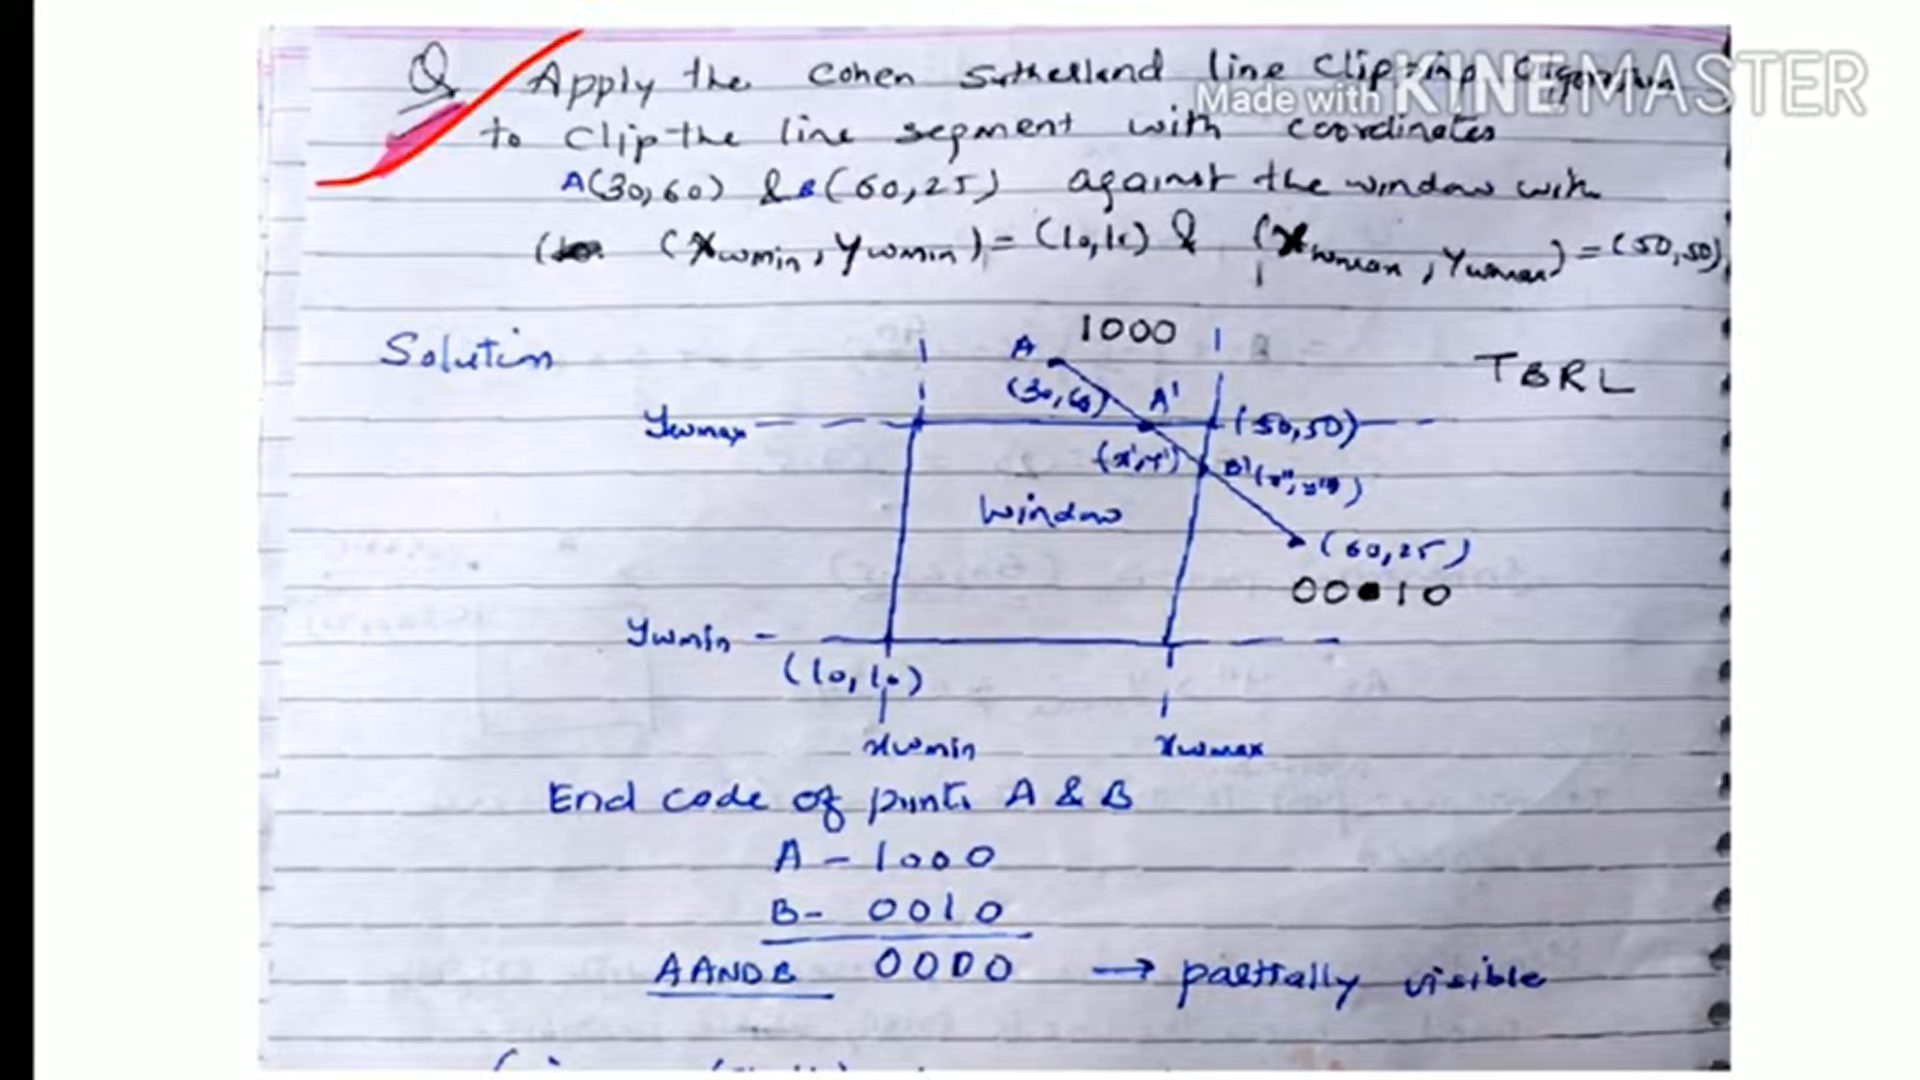 Q Apply the Cohen Sutherland line Clipping
Made with KINEMASTER
to Clip the line segment with coordinates
A(30,60) & B(60,25) against the window with
(Xwmin, Ywmin) = (10,10) & (Xwmax, Ywmax) = (50,50)
Solution
1000
A
TBRL
(30,60)
A'
Ywmax
(50,50)
(x',y')
B'(x'',y'')
Window
(60,25)
00 10
Ywmin
(10,10)
xwmin
xwmax
End code of points A & B
A - 1000
B - 0010
A AND B 0000 → partially visible